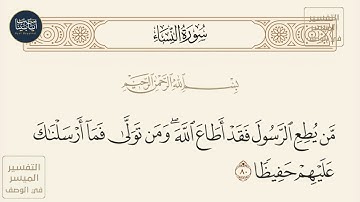 سُورَةُ النِّسَاءِ
التفسير
الميسر
في الوصف
بِسْمِ اللَّهِ الرَّحْمَٰنِ الرَّحِيمِ
مَّن يُطِعِ ٱلرَّسُولَ فَقَدْ أَطَاعَ ٱللَّهَۖ وَمَن تَوَلَّىٰ فَمَآ أَرْسَلْنَٰكَ
عَلَيْهِمْ حَفِيظًا ٨٠
التفسير
الميسر
في الوصف